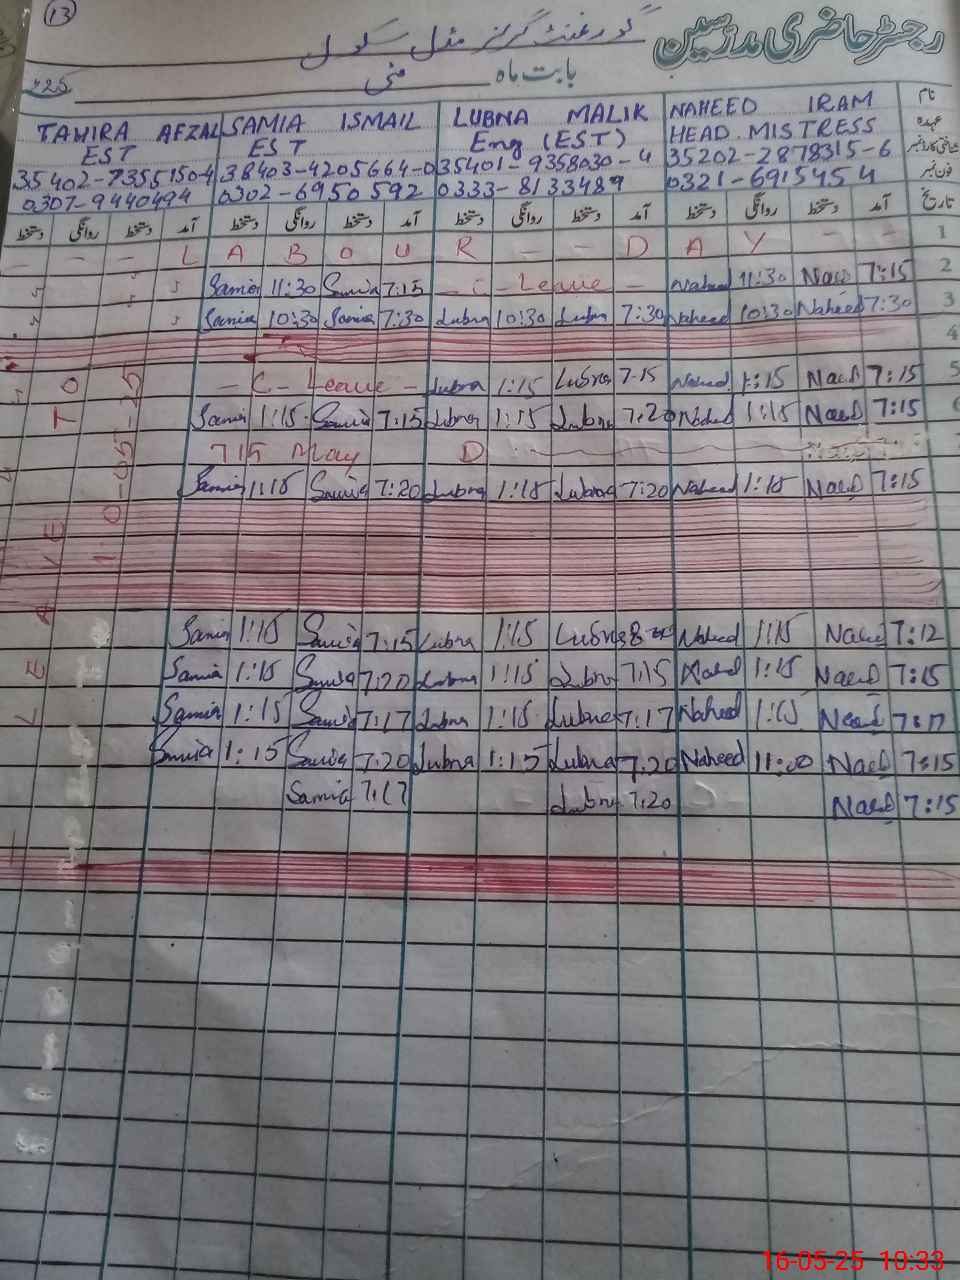 13
رجسٹر حاضری مدرسین
گورنمنٹ گرلز مڈل سکول
بابت ماہ مئی
نام NAHEED IRAM LUBNA MALIK SAMIA ISMAIL TAHIRA AFZAL
عہدہ HEAD MISTRESS Eng (EST) EST EST
شناختی کارڈ نمبر 35202-2878315-6 35401-9358030-4 38403-4205664-0 35402-7355150-4
فون نمبر 0321-6915454 0333-8133489 0302-6950592 0307-9440494
تاریخ آمد دستخط روانگی دستخط آمد دستخط روانگی دستخط آمد دستخط روانگی دستخط آمد دستخط روانگی دستخط
1 L A B O U R - - D A Y - -
2 Samia 11:30 Samia 7:15 - C - Leave - Naheed 11:30 7:15
3 Samia 10:30 Samia 7:30 Lubna 10:30 Lubna 7:30 Naheed 10:30 Naheed 7:30
4
5 - C - Leave - Lubna 1:15 Lubna 7:15 Naheed 1:15 7:15
6 Samia 1:15 Samia 7:15 Lubna 1:15 Lubna 7:20 Naheed 1:15 7:15
May
Samia 1:15 Samia 7:20 Lubna 1:15 Lubna 7:20 Naheed 1:15 7:15
Samia 1:15 Samia 7:15 Lubna 1:15 Lubna Naheed 1:15 7:12
Samia 1:15 Samia 7:20 Lubna 1:15 Lubna 7:15 Naheed 1:15 7:15
Samia 1:15 Samia 7:17 Lubna 1:15 Lubna 7:17 Naheed 1:15 7:17
Samia 1:15 Samia 7:20 Lubna 1:15 Lubna 7:20 Naheed 11:00 7:15
Samia 7:17 Lubna 7:20 7:15
LEAVE TO
16-05-25 10:33